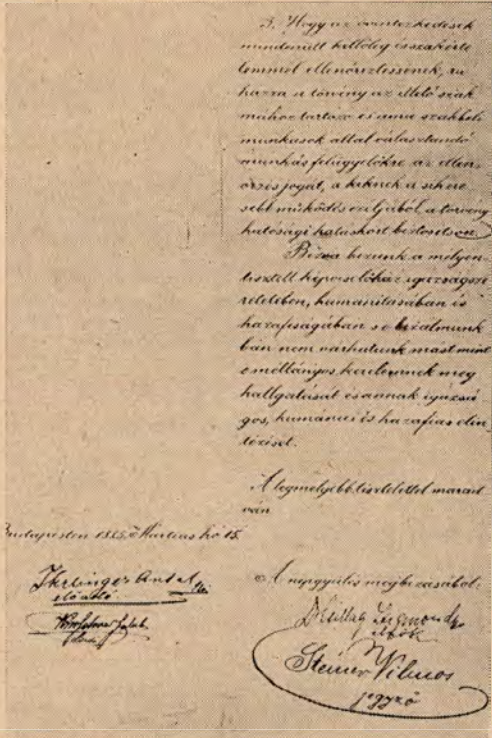 3. Hogy az óvintézkedések
mindenütt kellőleg és szakérte
lemmel ellenőriztessenek, ru
házza a törvény az illető szak
mához tartozó és ama szakbeli
munkások által választandó
munkás felügyelőkre az ellen
őrzés jogát, a kiknek a sikere
sebb működés czéljából a törvény
hatósági hatáskört biztosítson.
Bízva bízunk a mélyen
tisztelt képviselőház igazságsze
retetében, humanitásában és
hazafiságában s e bizalmunk
ban nem várhatunk mást mint
e méltányos kérelmünk meg
hallgatását és annak igazsá
gos, humánus és hazafias elin
tézését.
A legmélyebb tisztelettel marad
ván
Budapesten 1885. Martius hó 15.
A népgyűlés megbízásából:
Ihrlinger Antal
előadó
Zsigmond
elnök
Steiner Vilmos
jegyző